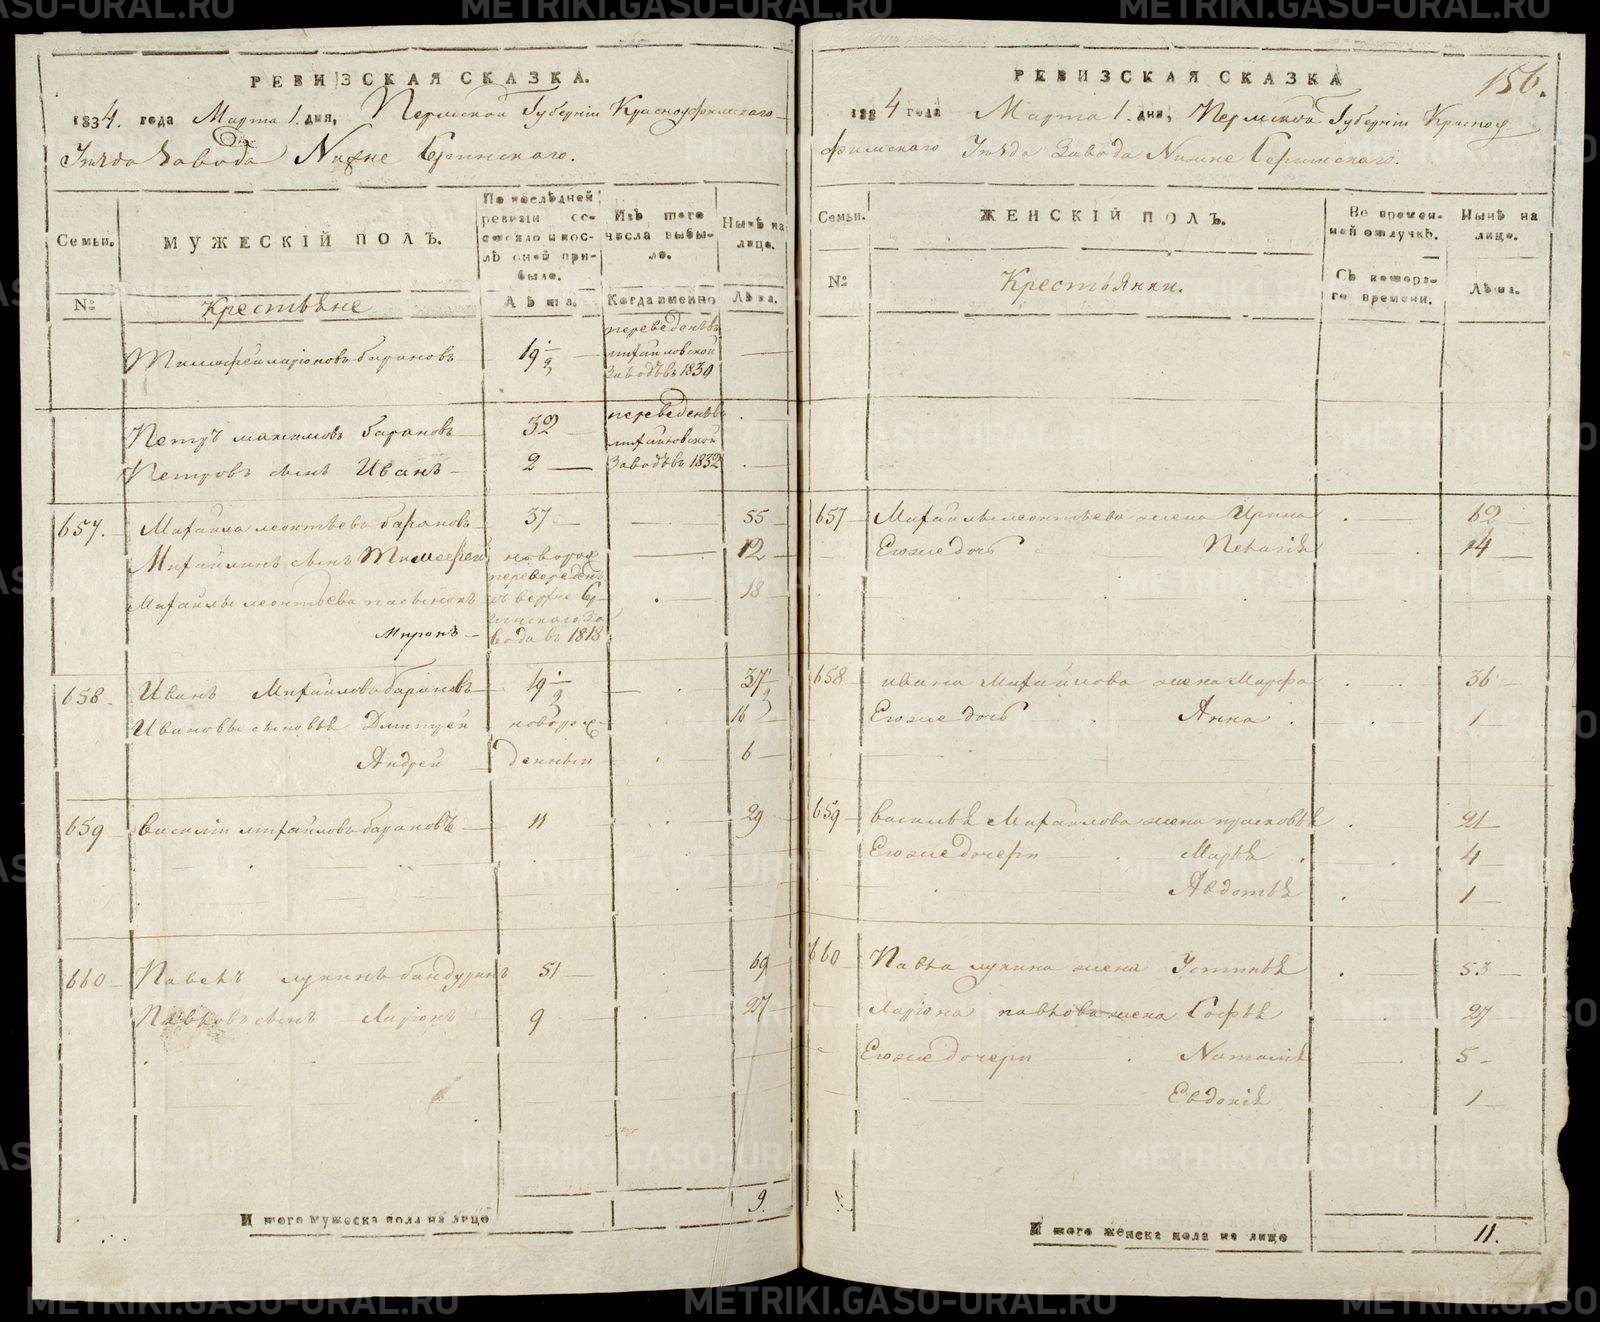 РЕВИЗСКАЯ СКАЗКА.
1834. года Марта 1. дня, Пермской Губерніи Красноуфимскаго
Уѣзда Завода Нижне Сергинскаго.
Семьи.
МУЖЕСКІЙ ПОЛЪ.
По послѣдней
ревизіи со-
стояло и пос-
лѣ оной при-
было.
Изъ того
числа выбы-
ло.
Нынѣ на
лицо.
№
Крестьяне
Лѣта.
Когда именно
Лѣта.
Барановъ
19 1/2
переведенъ въ
михайловской
Заводъ въ 1830
Петръ максимовъ барановъ
32
переведенъ въ
михайловской
Петровъ сынъ Иванъ
2
Заводъ въ 1832
657. Михайла леонтьевъ барановъ 37 55
Михайлинъ сынъ Тимофей новорож 12
Михайлы леонтьева пасынокъ 18
Миронъ
вода въ 1818
658 Иванъ Михайловъ барановъ 19 1/2 37 1/2
Ивановы сыновья Дмитрей новорож- 16
Андрей денныи 6
659 Василіи михайловъ барановъ 11 29
660 Павелъ лукинъ 51 69
Павловъ сынъ Ларіонъ 9 27
И того мужеска пола на лицо 9.
РЕВИЗСКАЯ СКАЗКА
156.
1834 года Марта 1. дня, Пермской Губерніи Красноу
фимскаго Уѣзда Завода Нижне Сергинскаго.
Семьи.
ЖЕНСКІЙ ПОЛЪ.
Во времен-
ной отлучкѣ.
Нынѣ на
лицо.
№
Крестьянки.
Съ котора-
го времени.
Лѣта.
657 Михайлы леонтьева жена Ирина 62
Егоже дочь 14
658 ивана Михайлова жена Марфа 36
Егоже дочь Анна 1
659 Василья Михайлова жена прасковья 21
Егоже дочери Марья 4
Авдотья 1
660 Павла лукина жена Устинья 53
Ларіона павлова жена Софья 27
Егоже дочери Наталія 5
Евдокія 1
И того женска пола на лицо 11.
METRIKI.GASO-URAL.RU